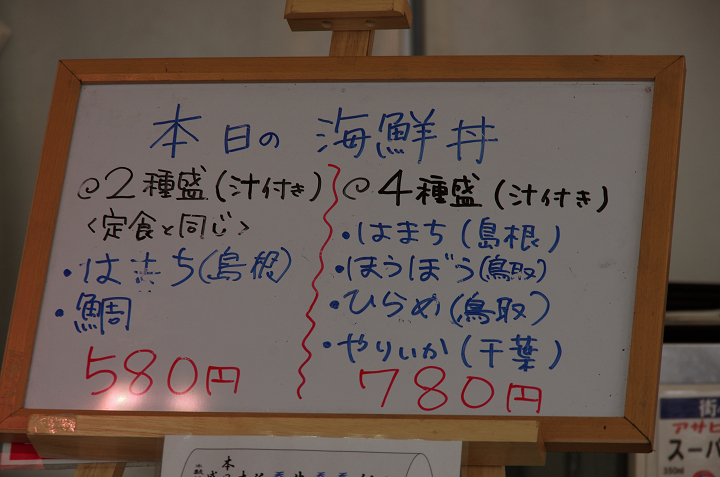 本日の 海鮮丼
@2種盛(汁付き)
<定食と同じ>
・はまち(島根)
・鯛
580円
@4種盛(汁付き)
・はまち(島根)
・ほうぼう(鳥取)
・ひらめ(鳥取)
・やりいか(千葉)
780円
本
街
アサヒ
スーパ
350ml